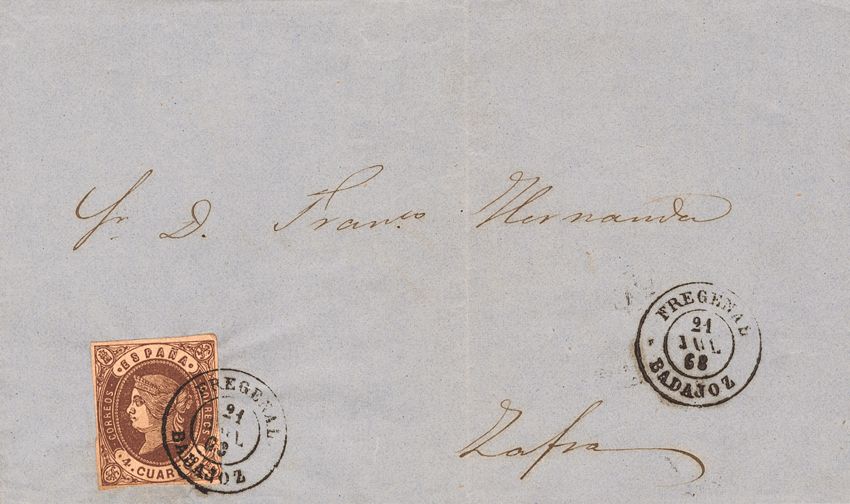 Sr. D. Franco. Hernandez
FREGENAL
21
JUL
68
BADAJOZ
ESPAÑA
CORREOS
CORREOS
4 CUAR
FREGENAL
21
JUL
BADAJOZ
Zafra